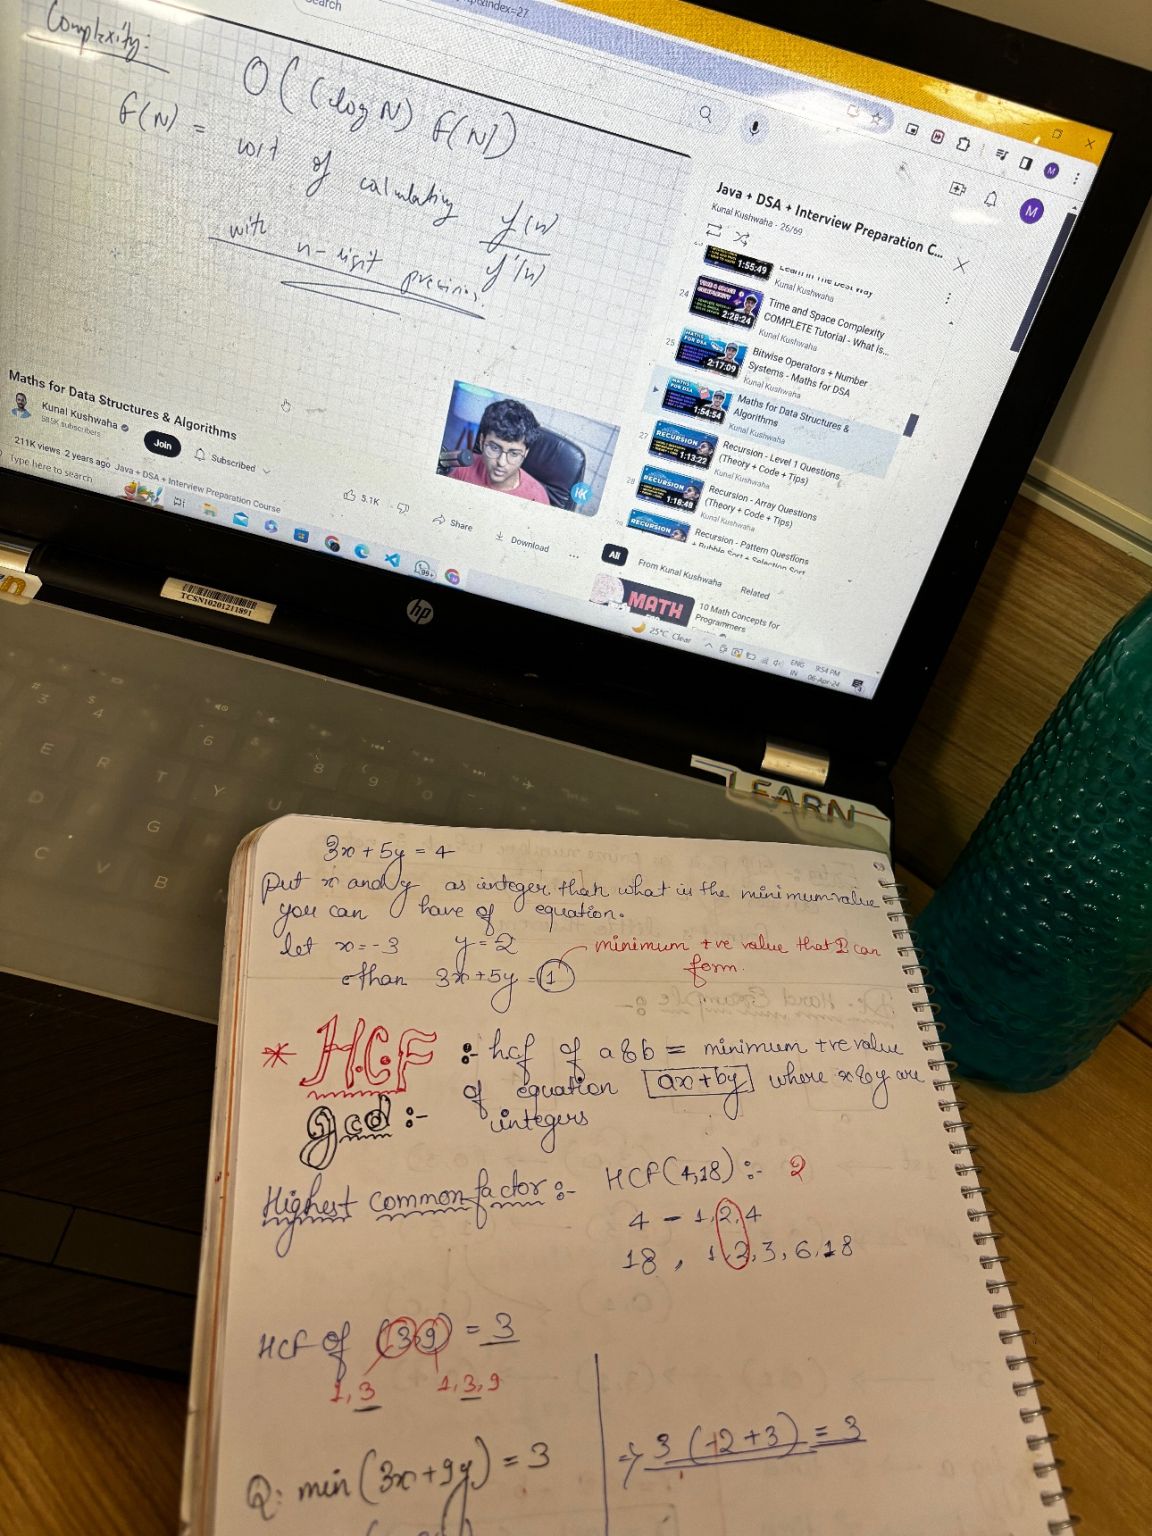 Search
index=27
Complexity:
O((log N) F(N))
F(N) = cost of calculating f(n)
f'(n)
with n-digit precision.
Java + DSA + Interview Preparation C...
Kunal Kushwaha - 26/69
1:55:49
Kunal Kushwaha
24
2:26:24
Time and Space Complexity
COMPLETE Tutorial - What is...
Kunal Kushwaha
25
MATHS FOR DSA
2:17:09
Bitwise Operators + Number
Systems - Maths for DSA
Kunal Kushwaha
MATHS FOR DSA
1:54:54
Maths for Data Structures &
Algorithms
Kunal Kushwaha
27
RECURSION
1:13:22
Recursion - Level 1 Questions
(Theory + Code + Tips)
Kunal Kushwaha
28
RECURSION
1:18:48
Recursion - Array Questions
(Theory + Code + Tips)
Kunal Kushwaha
RECURSION
Recursion - Pattern Questions
+ Bubble Sort + Selection Sort
All
From Kunal Kushwaha
Related
MATH
10 Math Concepts for
Programmers
Maths for Data Structures & Algorithms
Kunal Kushwaha
585K subscribers
Join
Subscribed
5.1K
Share
Download
...
211K views 2 years ago Java + DSA + Interview Preparation Course
Type here to search
99+
25°C Clear
ENG
IN
9:54 PM
06-Apr-24
TCSN10201211891
hp
LEARN
3x + 5y = 4
Put x and y as integer than what is the minimum value
you can have of equation.
let x = -3 y = 2
than 3x + 5y = 1
minimum +ve value that I can
form.
* H.C.F :- hcf of a & b = minimum +ve value
of equation ax+by where x & y are
integers
gcd :-
Highest common factor :- HCF(4,18) :- 2
4 - 1, 2, 4
18, 1, 2, 3, 6, 18
HCF of (3 9) = 3
1, 3
1, 3, 9
Q: min (3x + 9y) = 3
⇒ 3 (-2 + 3) = 3